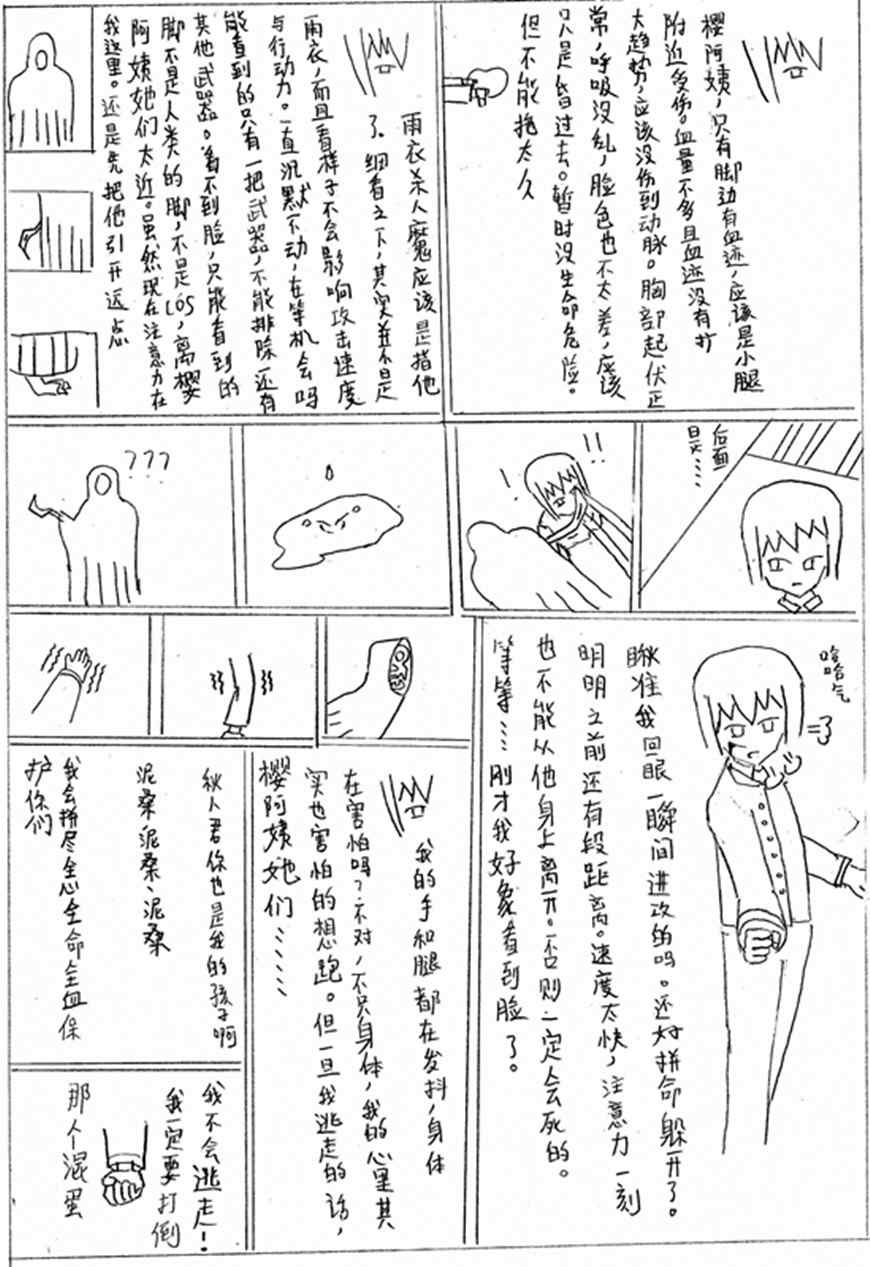 樱阿姨，只有脚边有血迹，应该是小腿
附近受伤。血量不多且血迹没有扩
大趋势，应该没伤到动脉。胸部起伏正
常，呼吸没乱，脸色也不太差，应该
只是昏过去。暂时没生命危险。
但不能拖太久
雨衣杀人魔应该是指他
了。细看之下，其实并不是
雨衣，而且看样子不会影响攻击速度
与行动力。一直沉默不动，在等机会吗
能看到的只有一把武器，不能排除还有
其他武器。看不到脸，只能看到的
脚不是人类的脚，不是COS，离樱
阿姨她们太近。虽然现在注意力在
我这里。还是先把他引开远点
后面
是……
!!
!
???
哈哈气
瞅准我回眼一瞬间进攻的吗。还好拼命躲开了。
明明之前还有段距离。速度太快，注意力一刻
也不能从他身上离开。否则一定会死的。
等等……刚才我好象看到脸了。
我的手和腿都在发抖，身体
在害怕吗？不对，不只身体，我的心里其
实也害怕的想跑。但一旦我逃走的话，
樱阿姨她们……
秋人君你也是我的孩子啊
泥桑泥桑、泥桑
我会拼尽全心全命全血保
护你们
我不会逃走！
我一定要打倒
那个混蛋